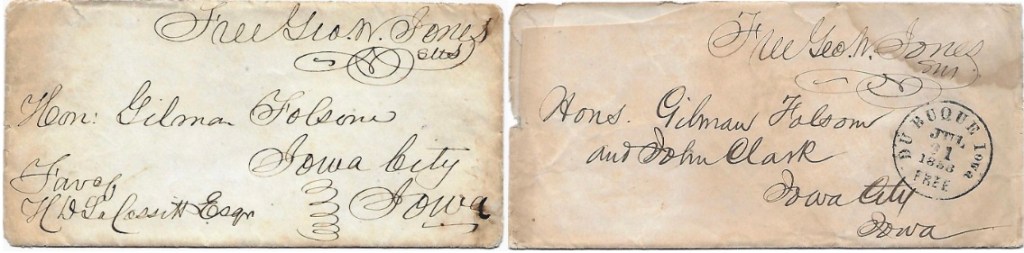 Free Geo. W. Jones
Hon: Gilman Folsom
Iowa City
Iowa
Favor
H D La Cossitt Esqr
Free Geo. W. Jones
Hons. Gilman Folsom
and John Clark
Iowa City
Iowa
DUBUQUE Iowa
JUL
21
FREE